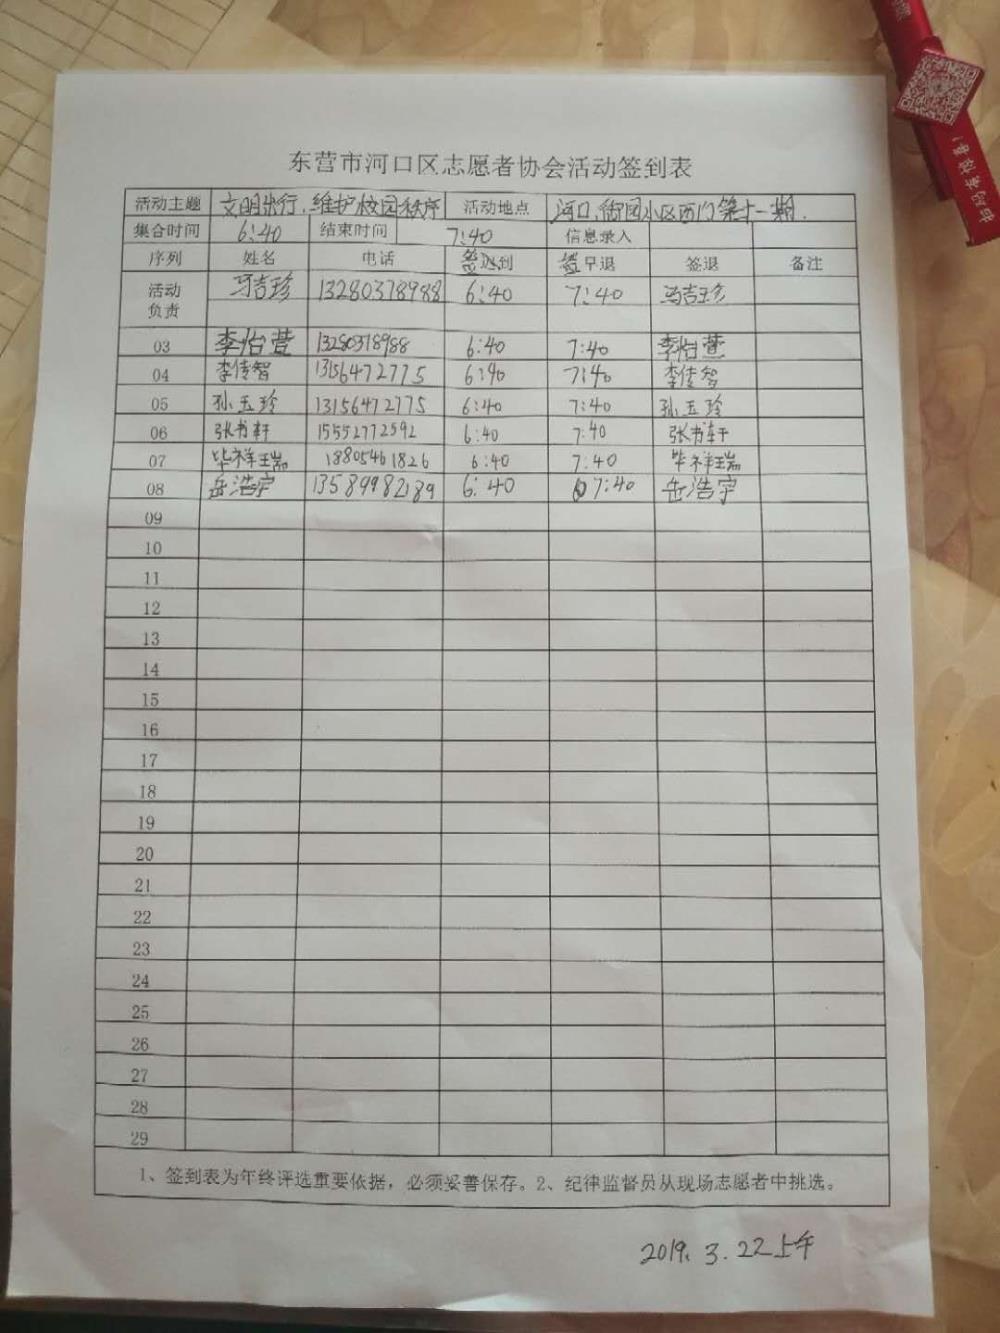 东营市河口区志愿者协会活动签到表
活动主题 文明出行,维护校园秩序 活动地点 河口,御园小区西门第十一期.
集合时间 6:40 结束时间 7:40 信息录入
序列 姓名 电话 签到 早退 签退 备注
活动负责 马吉珍 13280378988 6:40 7:40 马吉珍
03 李怡萱 13280378988 6:40 7:40 李怡萱
04 李传智 13156472775 6:40 7:40 李传智
05 孙玉珍 13156472775 6:40 7:40 孙玉珍
06 张书轩 15552772592 6:40 7:40 张书轩
07 毕祥瑞 18805461826 6:40 7:40 毕祥瑞
08 岳浩宇 13589982189 6:40 7:40 岳浩宇
09
10
11
12
13
14
15
16
17
18
19
20
21
22
23
24
25
26
27
28
29
1、签到表为年终评选重要依据，必须妥善保存。2、纪律监督员从现场志愿者中挑选。
2019.3.22上午